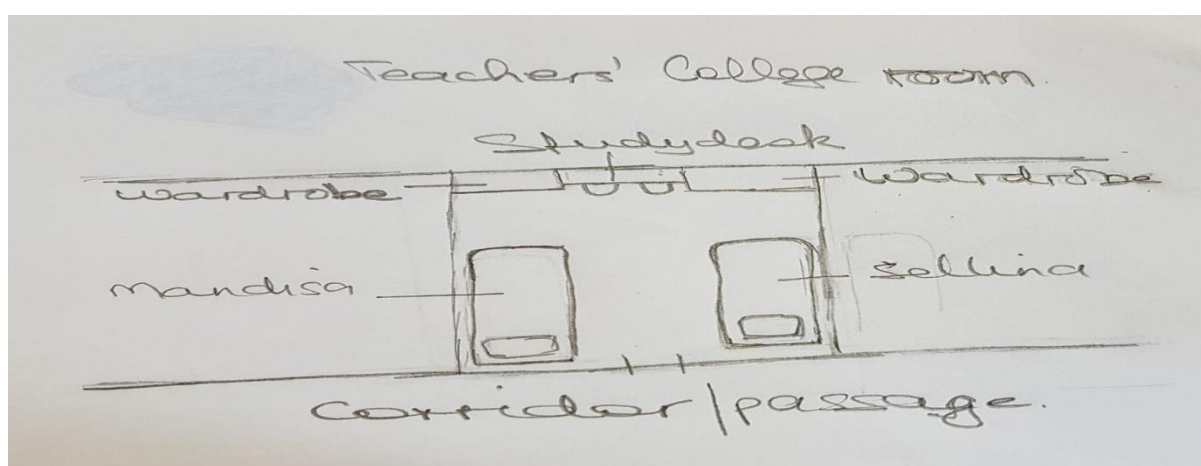 Teachers' College room.
Studydesk
wardrobe
Wardrobe
mandisa
Sellina
Corridor/passage.